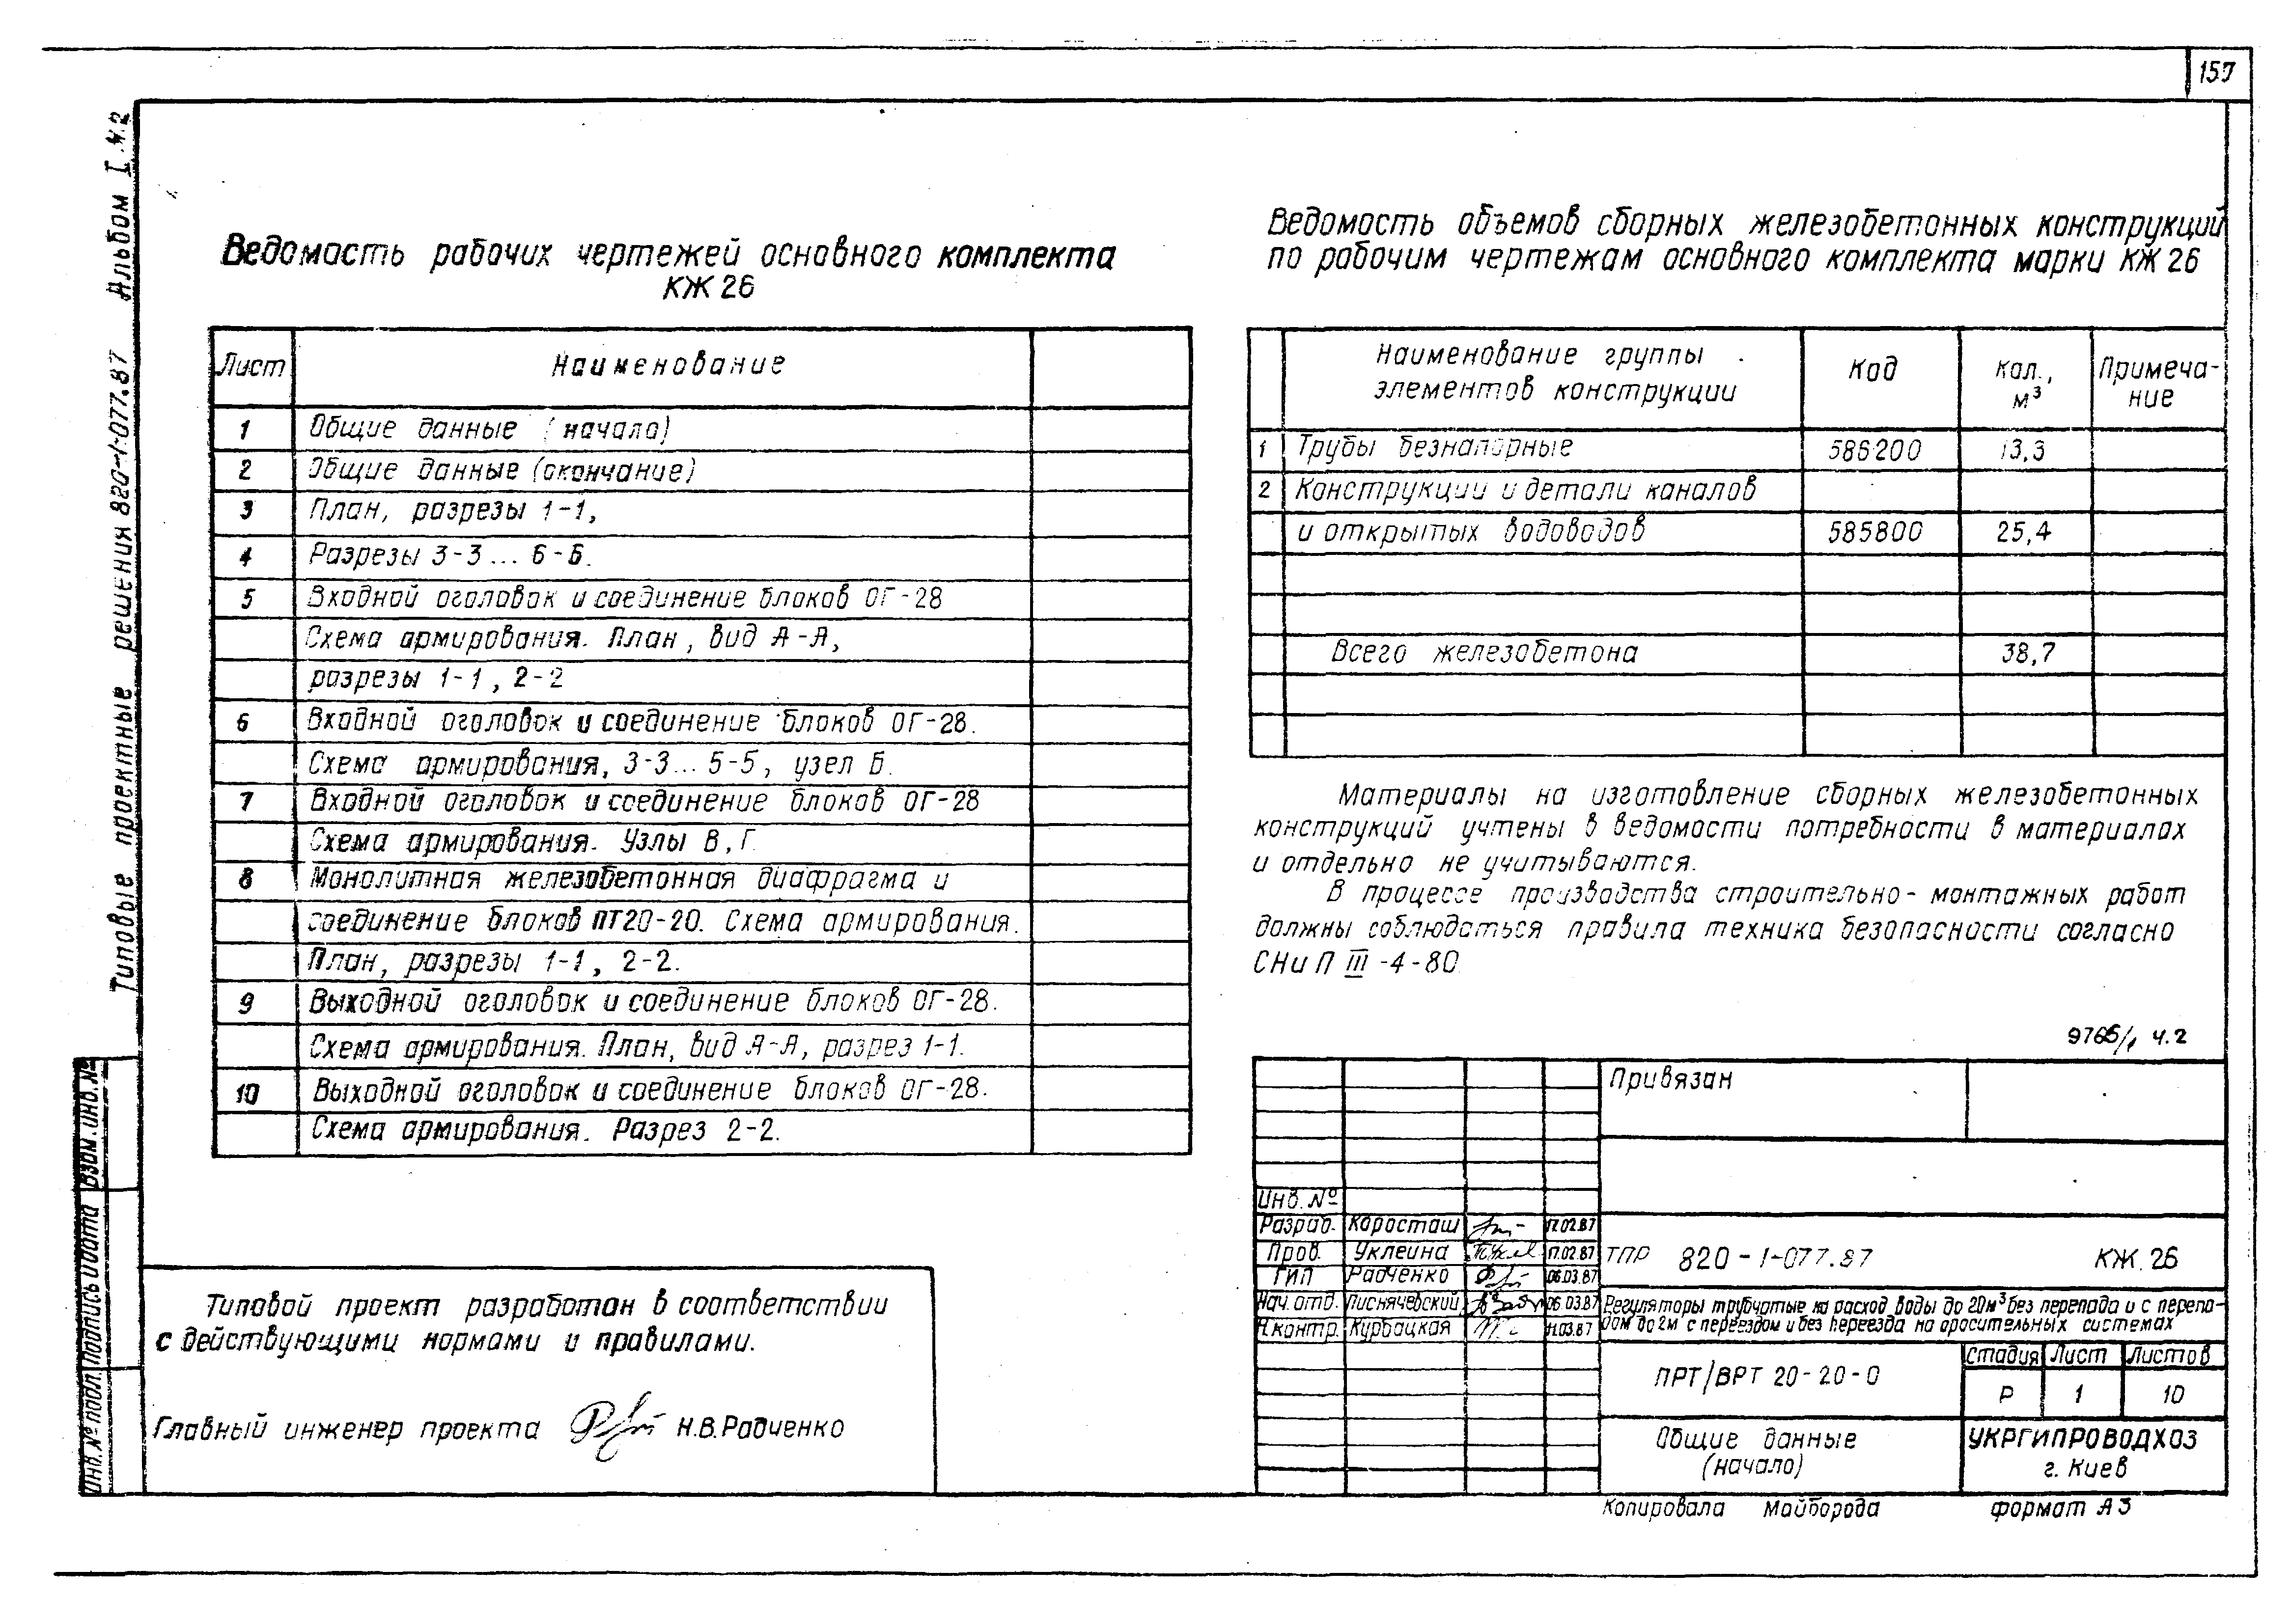 157
Типовые проектные решения 820-1-077.87 Альбом I ч.2
Ведомость рабочих чертежей основного комплекта
КЖ 26
Лист Наименование
1 Общие данные (начало)
2 Общие данные (окончание)
3 План, разрезы 1-1,
4 Разрезы 3-3... 6-6.
5 Входной оголовок и соединение блоков ОГ-28
Схема армирования. План, вид А-А,
разрезы 1-1, 2-2
6 Входной оголовок и соединение блоков ОГ-28.
Схема армирования, 3-3... 5-5, узел Б.
7 Входной оголовок и соединение блоков ОГ-28
Схема армирования. Узлы В, Г.
8 Монолитная железобетонная диафрагма и
соединение блоков ПТ20-20. Схема армирования.
План, разрезы 1-1, 2-2.
9 Выходной оголовок и соединение блоков ОГ-28.
Схема армирования. План, вид А-А, разрез 1-1.
10 Выходной оголовок и соединение блоков ОГ-28.
Схема армирования. Разрез 2-2.
Типовой проект разработан в соответствии
с действующими нормами и правилами.
Главный инженер проекта Н.В.Радченко
Инв.№ подл. Подпись и дата Взам.инв.№
Ведомость объемов сборных железобетонных конструкций
по рабочим чертежам основного комплекта марки КЖ 26
Наименование группы элементов конструкции Код Кол., м³ Примеча-ние
1 Трубы безнапорные 586200 13,3
2 Конструкции и детали каналов
и открытых водоводов 585800 25,4
Всего железобетона 38,7
Материалы на изготовление сборных железобетонных
конструкций учтены в ведомости потребности в материалах
и отдельно не учитываются.
В процессе производства строительно-монтажных работ
должны соблюдаться правила техника безопасности согласно
СНиП III-4-80
ч.2
Привязан
Инв.№
Разраб. Коросташ 17.02.87
Пров. Уклеина 17.02.87
ГИП Радченко 06.03.87
Нач.отд. Лиснячевский 06.03.87
Н.контр. Курбацкая 11.03.87
ТПР 820-1-077.87 КЖ.26
Регуляторы трубчатые на расход воды до 20м³ без перепада и с перепа-
дом до 2м с переездом и без переезда на оросительных системах
ПРТ/ВРТ 20-20-0
Стадия Лист Листов
Р 1 10
Общие данные
(начало)
УКРГИПРОВОДХОЗ
г. Киев
Копировала Майборода формат А3